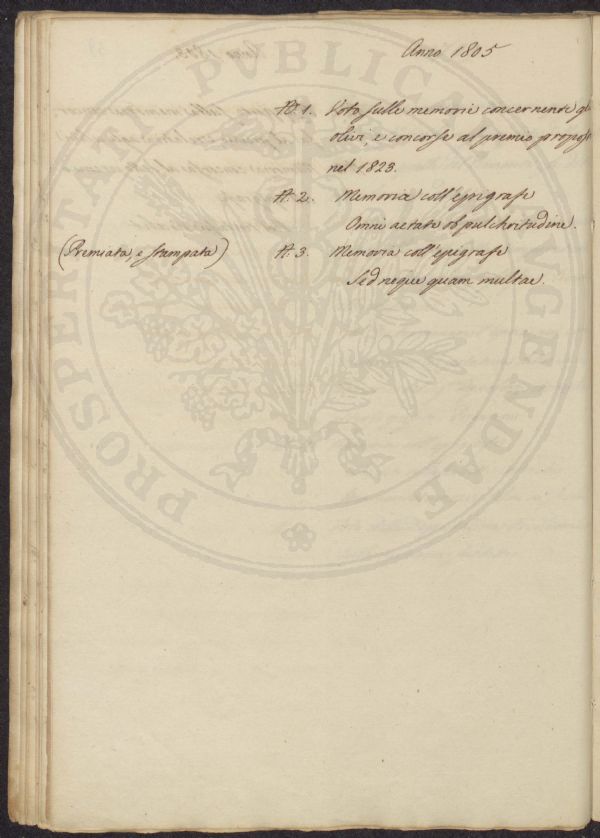 Anno 1805
N. 1. Voto sulle memorie concernente gl
olivi, e concorse al premio propos
nel 1823.
N. 2. Memoria coll'epigrafe
Omni aetate ob pulchritudine.
(Premiata e stampata) N. 3. Memoria coll'epigrafe
Sed neque quam multae.
PROSPERITATI PUBLICAE AUGENDAE